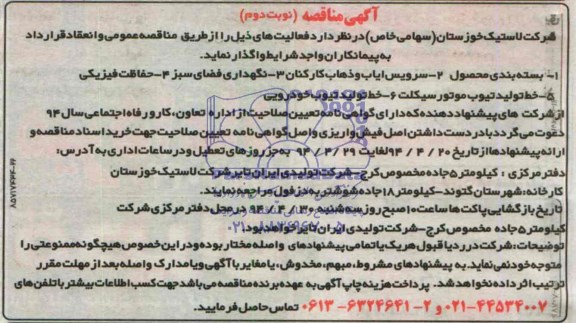 آگهی مناقصه (نوبت دوم)
شرکت لاستیک خوزستان(سهامی خاص) در نظر دارد فعالیت های ذیل را از طریق مناقصه عمومی و انعقاد قرارداد
به پیمانکاران واجد شرایط واگذار نماید.
۱- بسته بندی محصول ۲-سرویس ایاب و ذهاب کارکنان ۳-نگهداری فضای سبز ۴-حفاظت فیزیکی
۵-خط تولید تیوب موتور سیکلت ۶-خط تولید تیوب خودرویی
از شرکت های پیشنهاد دهنده که دارای گواهی نامه تعیین صلاحیت از اداره تعاون، کار و رفاه اجتماعی سال ۹۴
دعوت می گردد با در دست داشتن اصل فیش واریزی و اصل گواهی نامه تعیین صلاحیت جهت خرید اسناد مناقصه و
ارائه پیشنهادها از تاریخ ۲۰ / ۴ / ۹۴ لغایت ۲۹ / ۴ / ۹۴ به جز روزهای تعطیل و در ساعات اداری به آدرس:
دفتر مرکزی : کیلومتر ۵ جاده مخصوص کرج-شرکت تولیدی ایران تایر شرکت لاستیک خوزستان
کارخانه: شهرستان گتوند-کیلومتر ۱۸ جاده شوشتر به دزفول مراجعه نمایند.
تاریخ بازگشایی پاکت ها ساعت ۱۰ صبح روز سه شنبه ۳۰ / ۴ / ۹۴ در محل دفتر مرکزی شرکت
کیلومتر ۵ جاده مخصوص کرج-شرکت تولیدی ایران تایر خواهد بود.
توضیحات: شرکت در رد یا قبول هر یک یا تمامی پیشنهادهای واصله مختار بوده و در این خصوص هیچگونه ممنوعتی را
متوجه خود نمی نماید. به پیشنهادهای مشروط، مبهم، مخدوش، یا مغایر با آگهی و یا مدارک واصله بعد از مهلت مقرر
ترتیب اثر داده نخواهد شد. پرداخت هزینه چاپ آگهی به عهده برنده مناقصه می باشد جهت کسب اطلاعات بیشتر با تلفن های
۰۲۱-۴۴۵۳۴۰۰۷ و ۲- ۰۶۱۳-۶۳۲۴۶۴۱ تماس حاصل فرمایید.